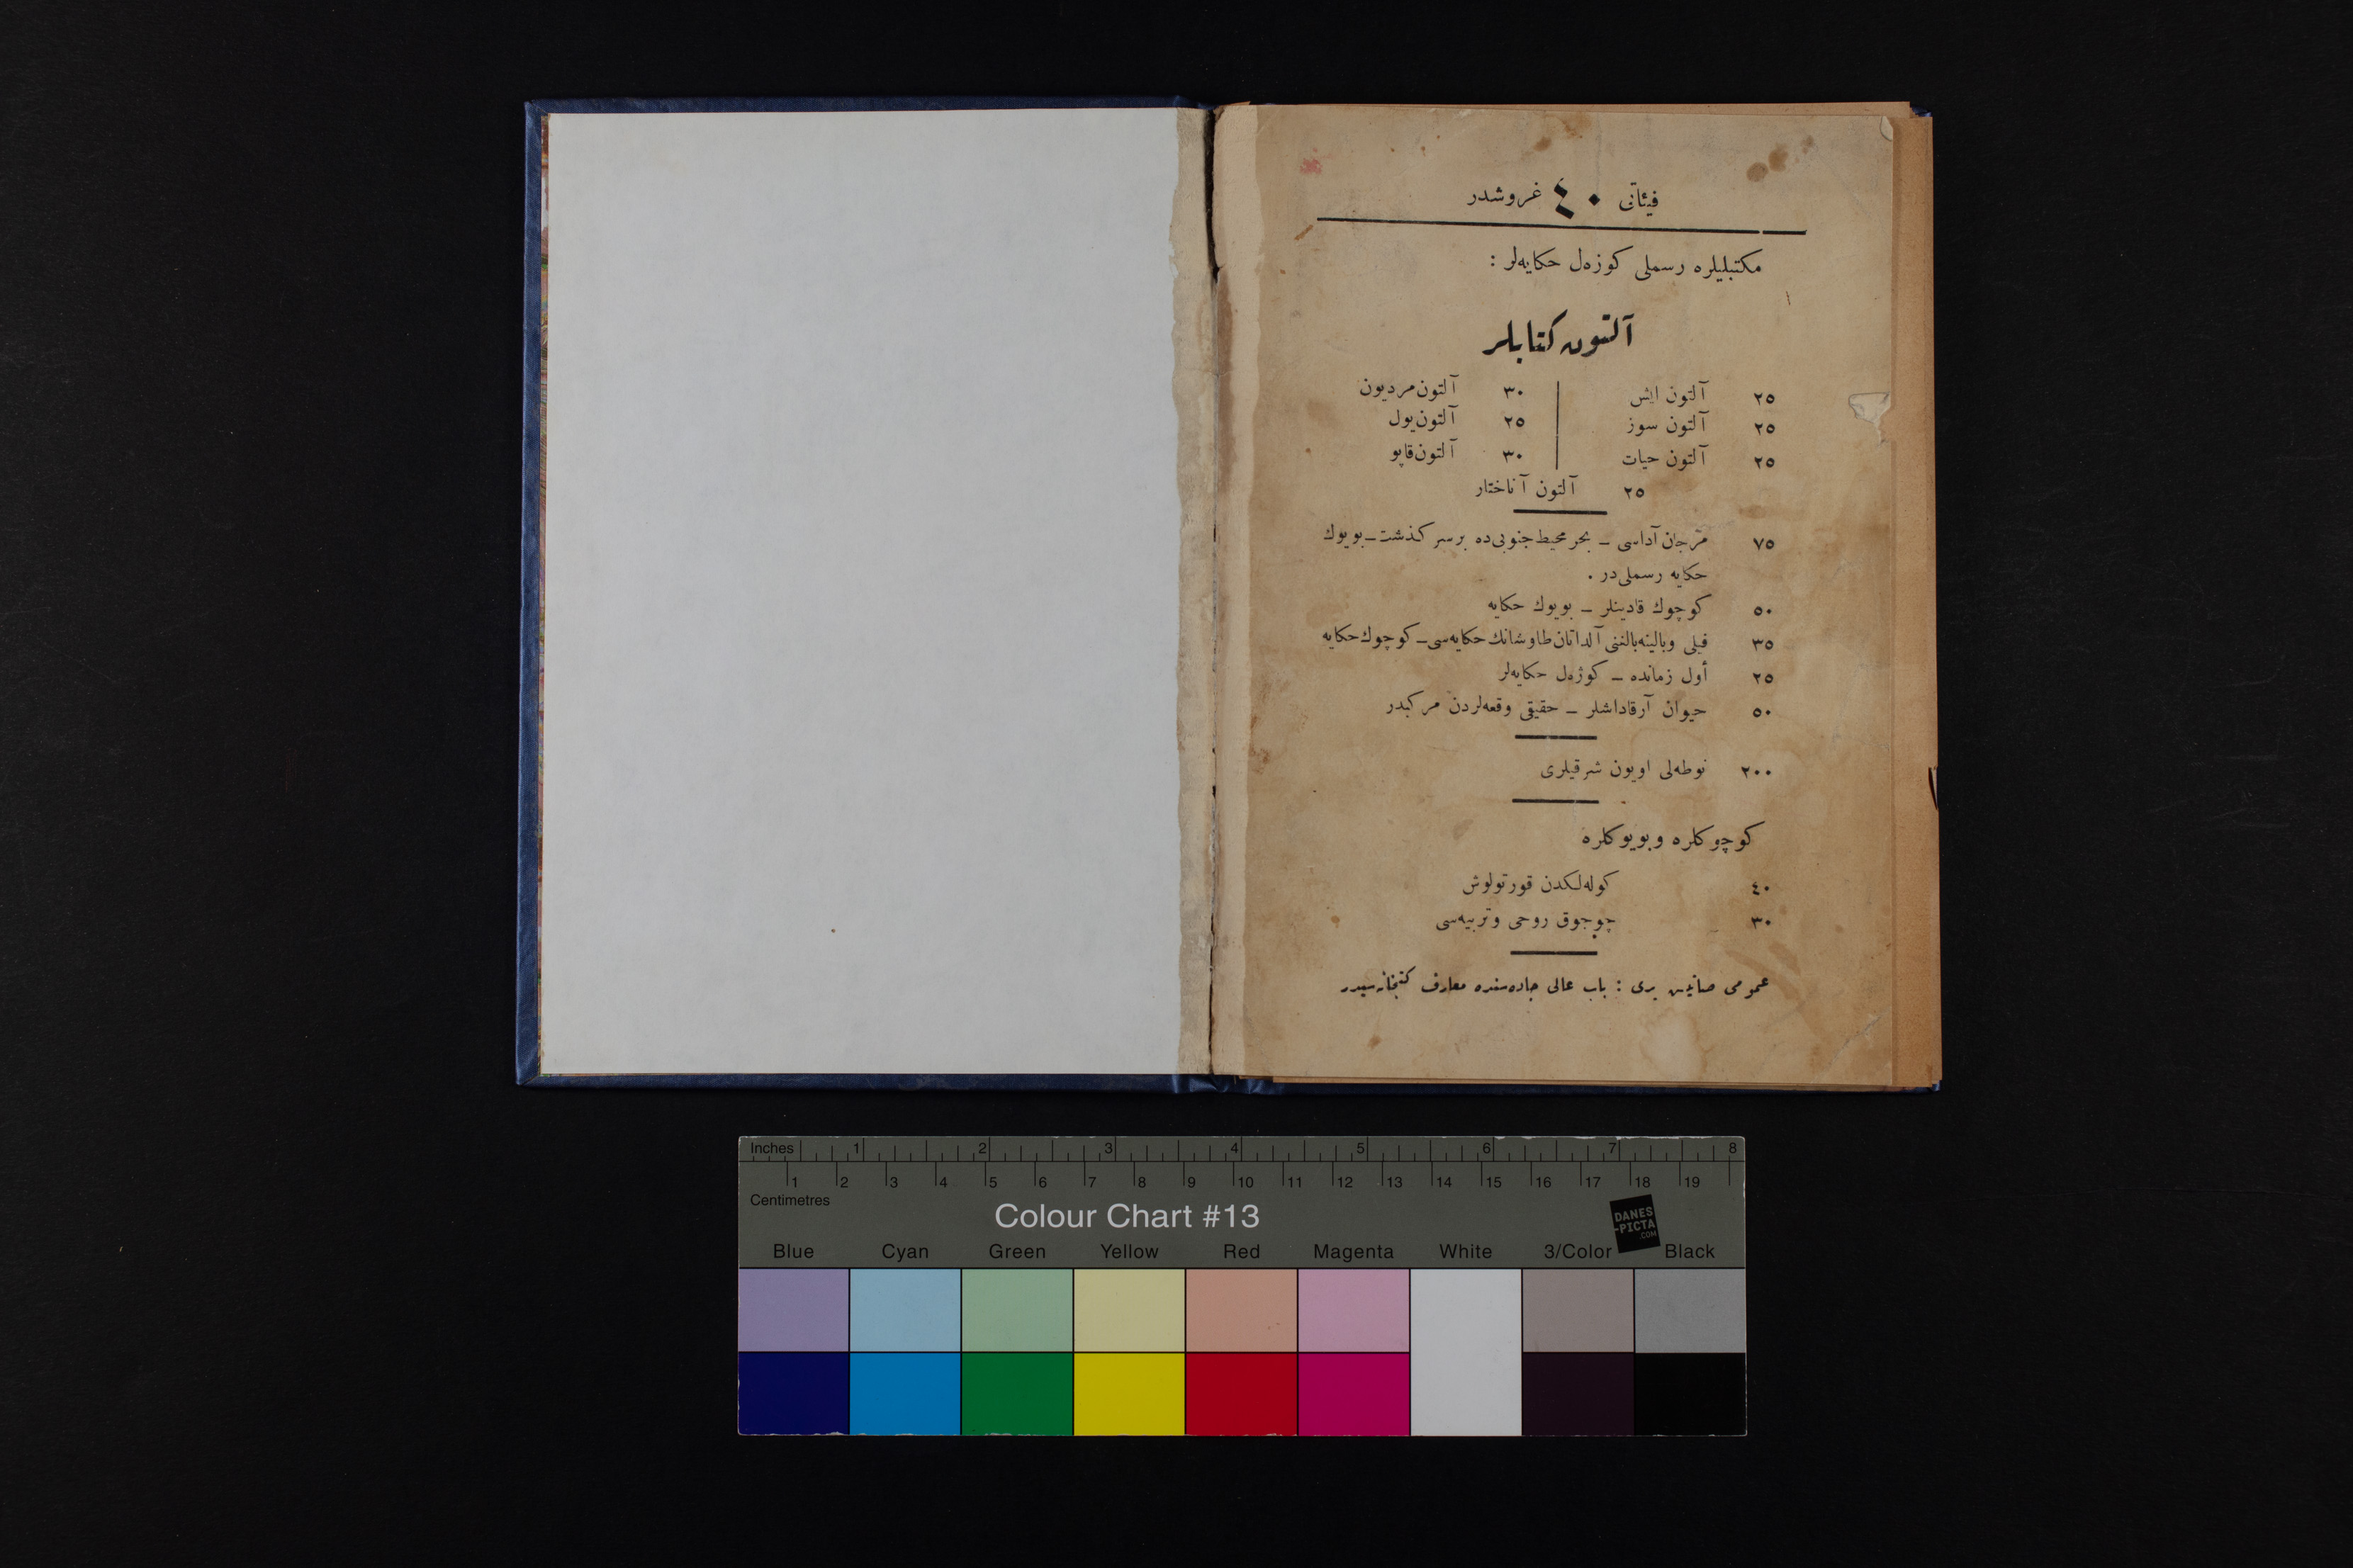 فيئاتى ٤٠ غروشدر
مكتبليلره رسملى كوزه‌ل حكايه‌لر :
آلتون كتابلر
٢٥ آلتون ايش
٢٥ آلتون سوز
٢٥ آلتون حيات
٣٠ آلتون مرديون
٢٥ آلتون يول
٣٠ آلتون قاپو
٢٥ آلتون آناختار
٧٥ مرجان آداسى ـ بحر محيط جنوبى‌ده بر سر كذشت ـ بويوك
حكايه رسملى‌در .
٥٠ كوچوك قادينلر ـ بويوك حكايه
٣٥ فيلى وبالينه‌بالغنى آلداتان طاوشانك حكايه‌سى ـ كوچوك حكايه
٢٥ أول زمانده ـ كوزه‌ل حكايه‌لر
٥٠ حيوان آرقاداشلر ـ حقيقى وقعه‌لردن مركبدر
٢٠٠ نوطه‌لى اويون شرقيلرى
كوچوكلره وبويوكلره
٤٠ كوله‌لكدن قورتولوش
٣٠ چوجوق روحى وتربيه‌سى
عمومى صاتيش يرى : باب عالى جاده‌سنده معارف كتبخانه‌سيدر
Inches 1 2 3 4 5 6 7 8
1 2 3 4 5 6 7 8 9 10 11 12 13 14 15 16 17 18 19
Centimetres
Colour Chart #13
DANES
-PICTA
.COM
Blue Cyan Green Yellow Red Magenta White 3/Color Black